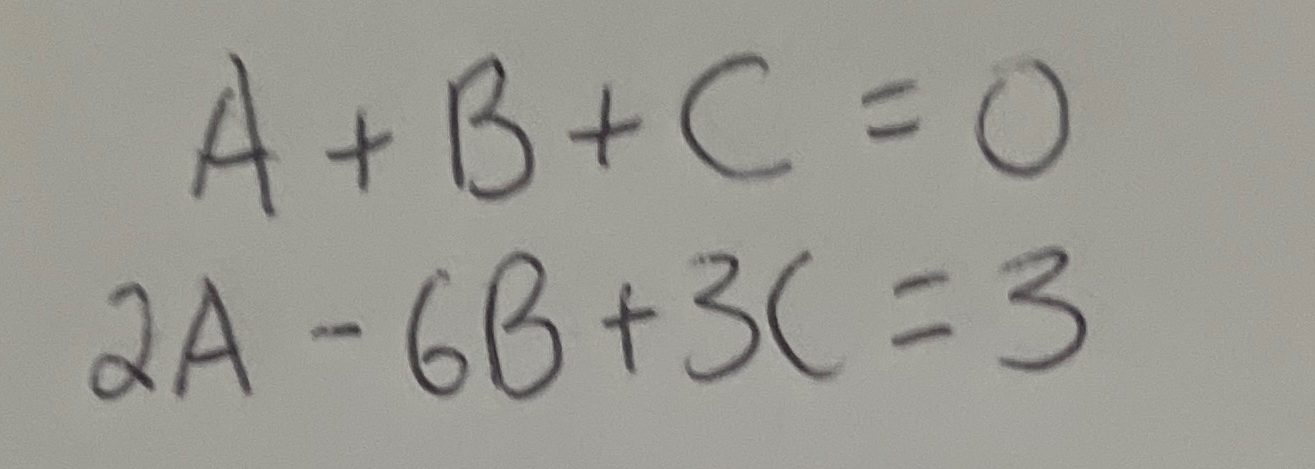 A + B + C = 0
2A - 6B + 3C = 3